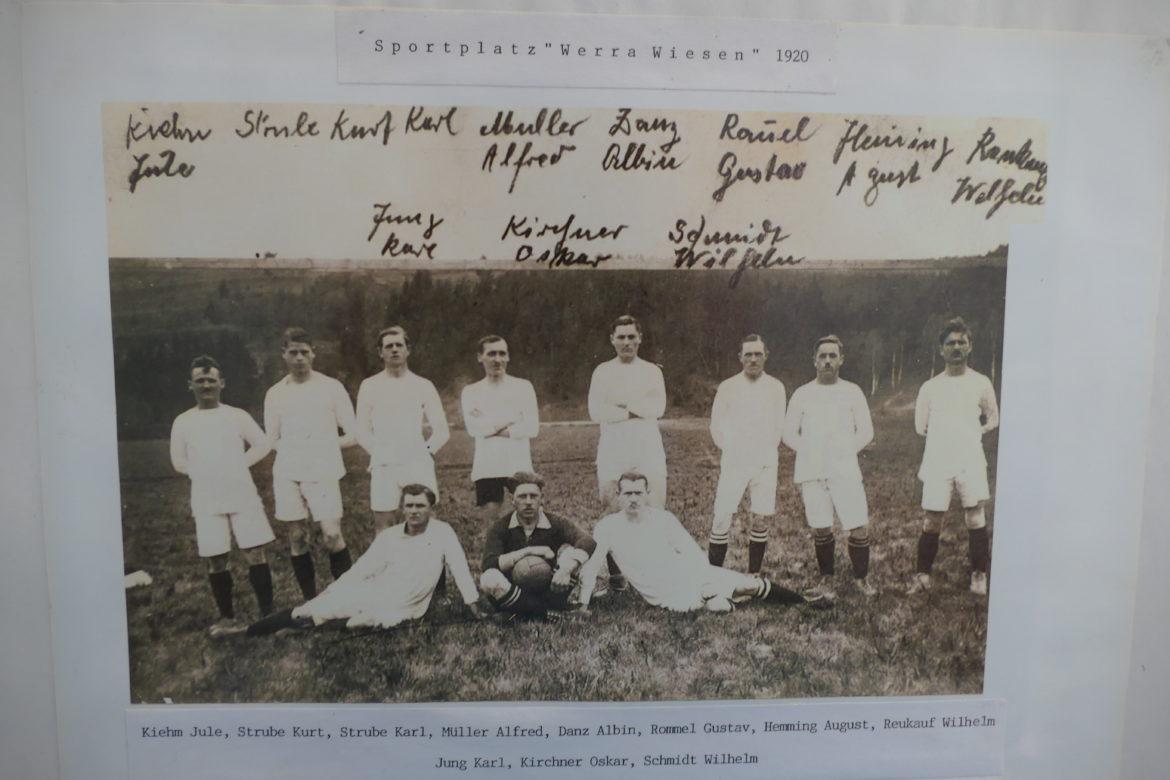 Sportplatz "Werra Wiesen" 1920
Kiehm Strube Kurt Karl Muller Danz Hemming
Jule Alfred Albin Gustav August Wilhelm
Jung Kirchner Schmidt
Karl Oskar Wilhelm
Kiehm Jule, Strube Kurt, Strube Karl, Müller Alfred, Danz Albin, Rommel Gustav, Hemming August, Reukauf Wilhelm
Jung Karl, Kirchner Oskar, Schmidt Wilhelm